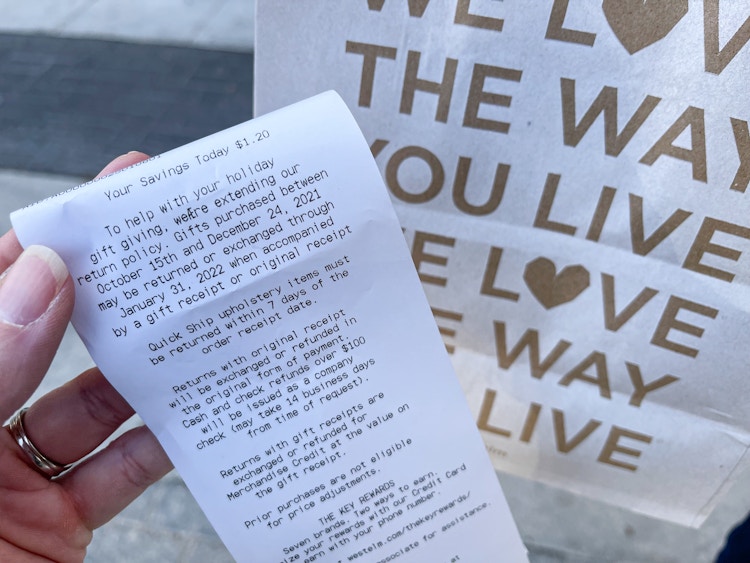 Your Savings Today $1.20
To help with your holiday
gift giving, we're extending our
return policy. Gifts purchased between
October 15th and December 24, 2021
may be returned or exchanged through
January 31, 2022 when accompanied
by a gift receipt or original receipt
Quick Ship upholstery items must
be returned within 7 days of the
order receipt date.
Returns with original receipt
will be exchanged or refunded in
the original form of payment.
Cash and check refunds over $100
will be issued as a company
check (may take 14 business days
from time of request).
Returns with gift receipts are
exchanged or refunded for
Merchandise Credit at the value on
the gift receipt.
Prior purchases are not eligible
for price adjustments.
THE KEY REWARDS
Seven brands. Two ways to earn.
your rewards with our Credit Card
earn with your phone number.
westelm.com/thekeyrewards/
associate for assistance.
at
WE LOVE
THE WAY
YOU LIVE
WE LOVE
THE WAY
LIVE